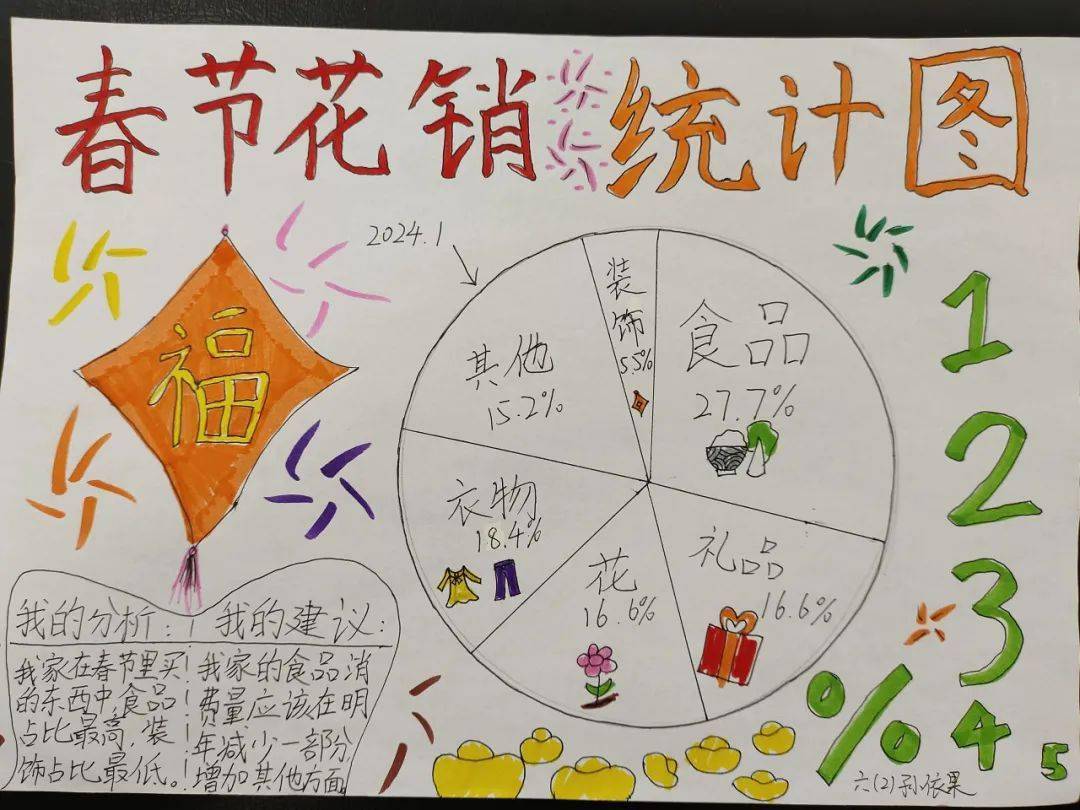 春节花销统计图
2024.1
福
装饰
5.5%
食品
27.7%
其他
15.2%
衣物
18.4%
花
16.6%
礼品
16.6%
1
2
3
4
5
%
我的分析:
我家在春节里买
的东西中,食品
占比最高,装
饰占比最低。
我的建议:
我家的食品消
费量应该在明
年减少一部分
增加其他方面
六(2)孙依果